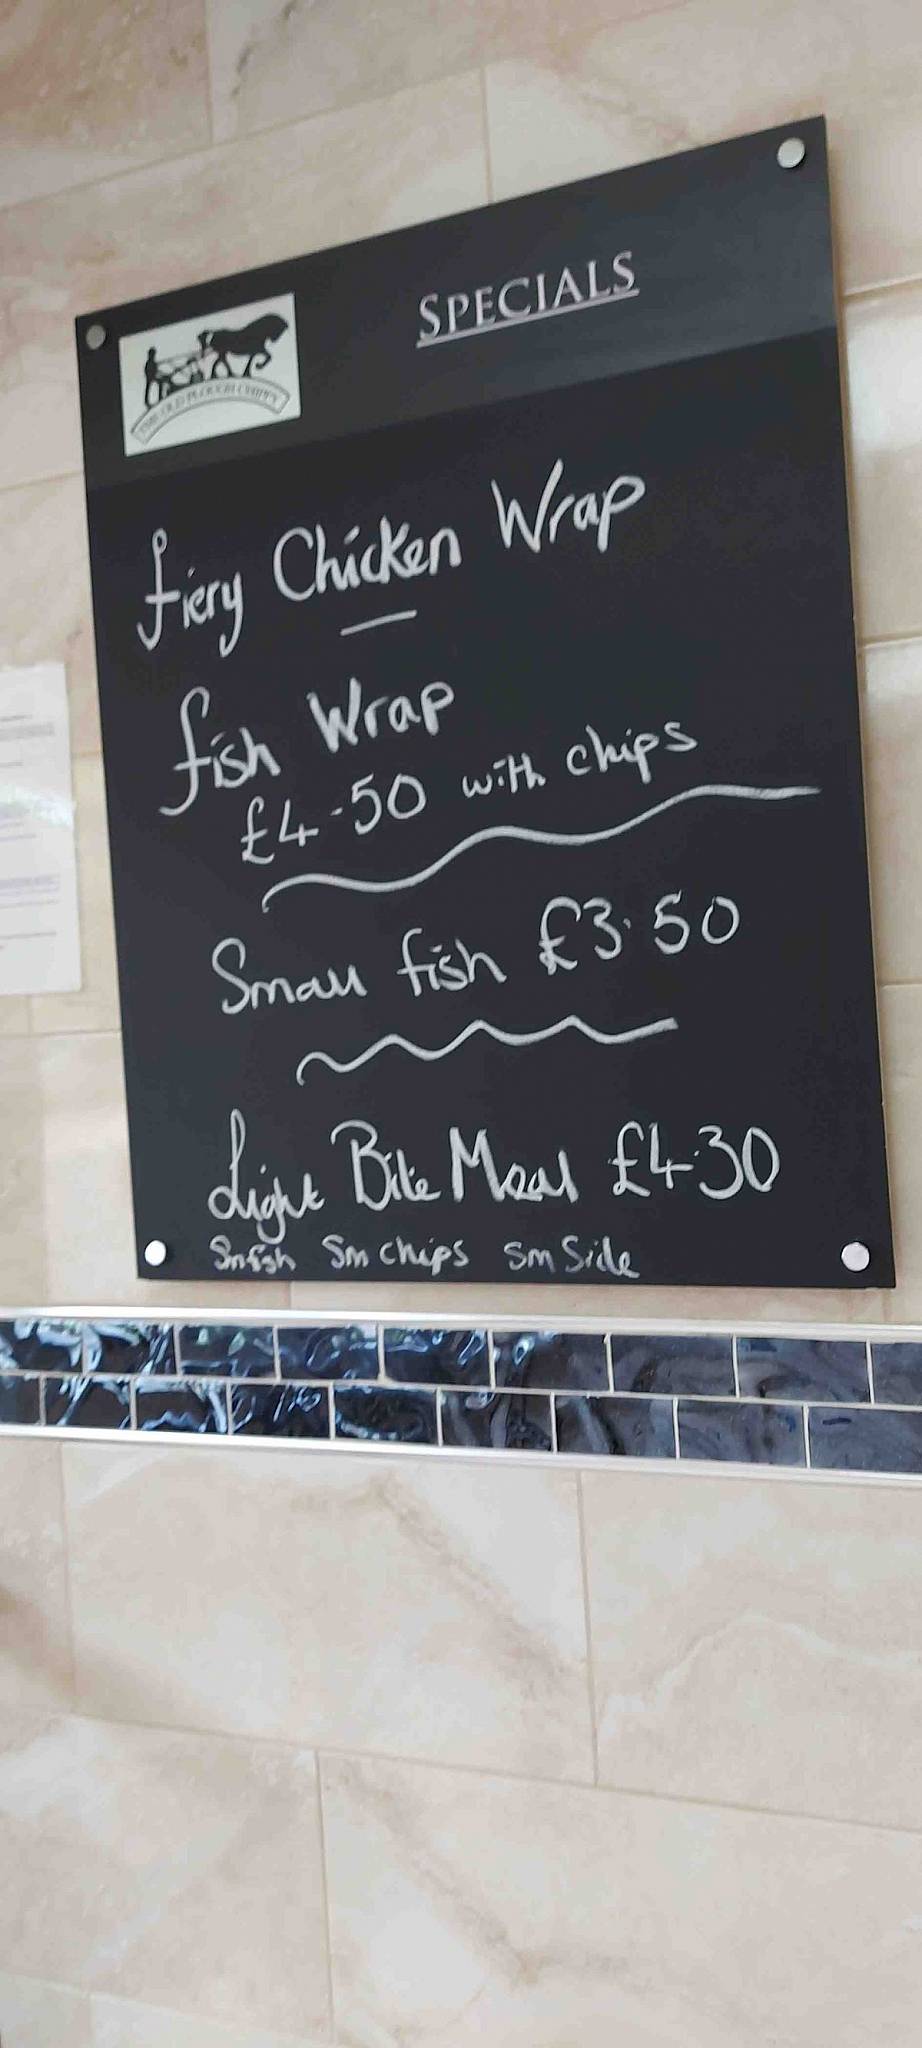 SPECIALS
THE OLD PLOUGH CHIPPY
Fiery Chicken Wrap
Fish Wrap
£4.50 with chips
Small fish £3.50
Light Bite Meal £4.30
Smfish Sm chips Sm Side